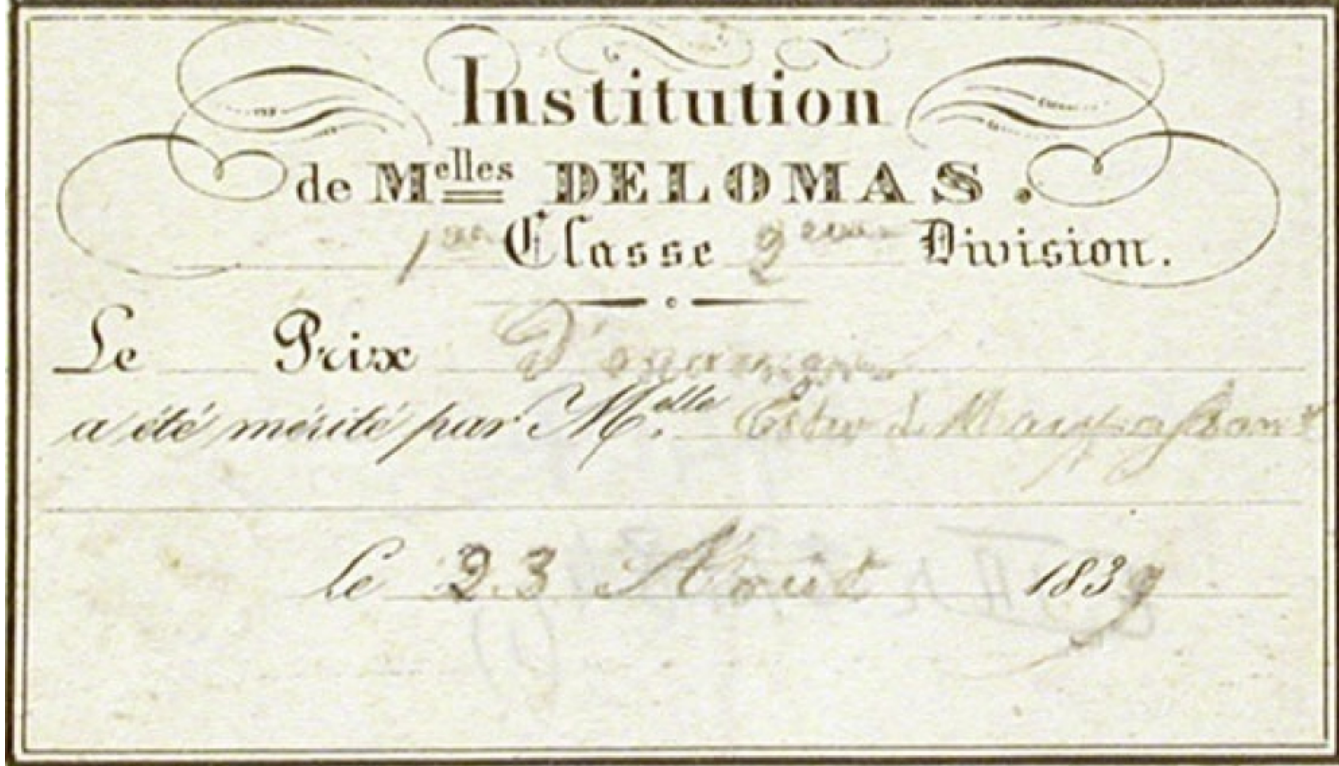 Institution
de Melles DELOMAS.
1ere Classe 2eme Division.
Le Prix D'examen
a été mérité par Melle. Ester
le 23 Août 1839